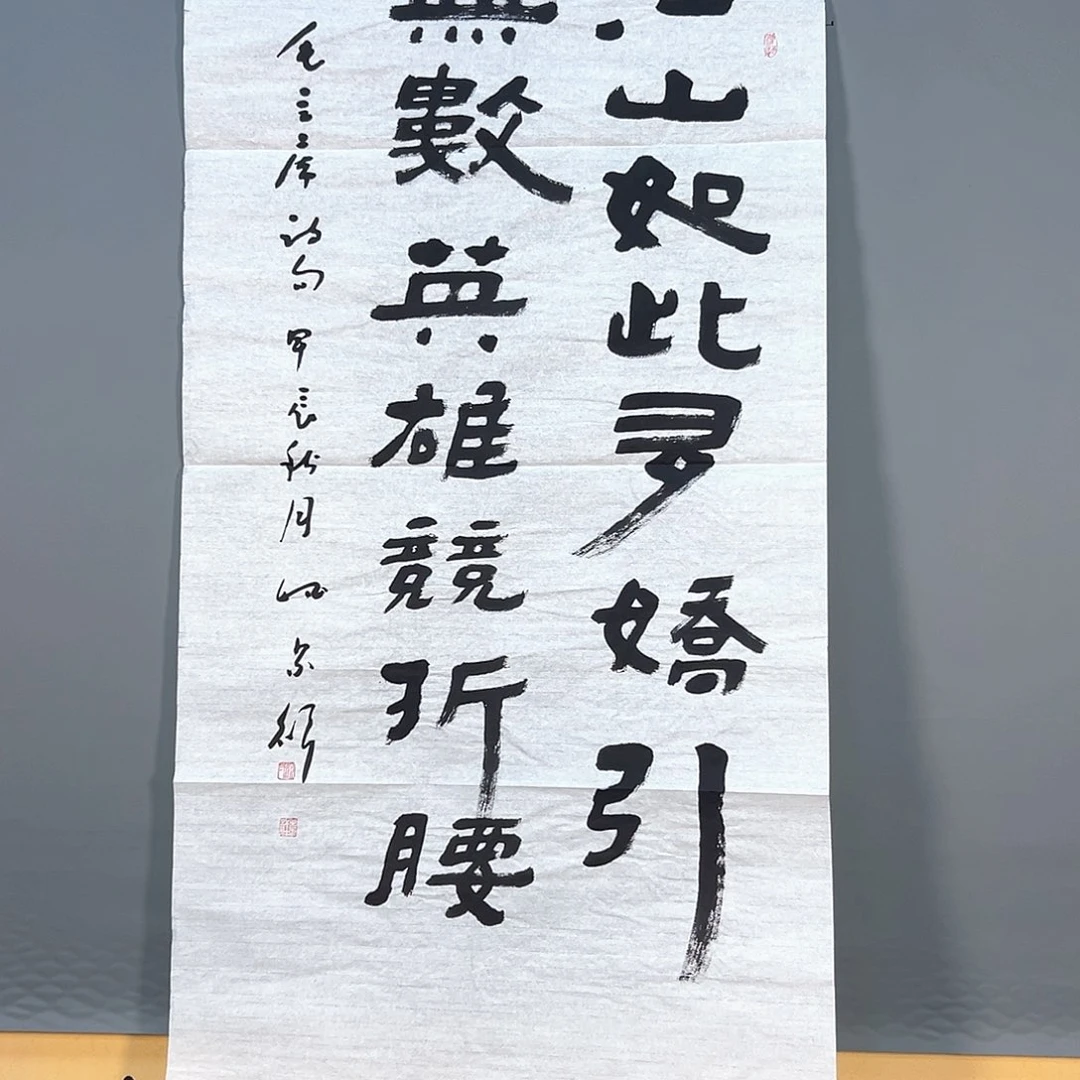 山如此多嬌引
無數英雄競折腰
毛主席詩句甲辰秋月